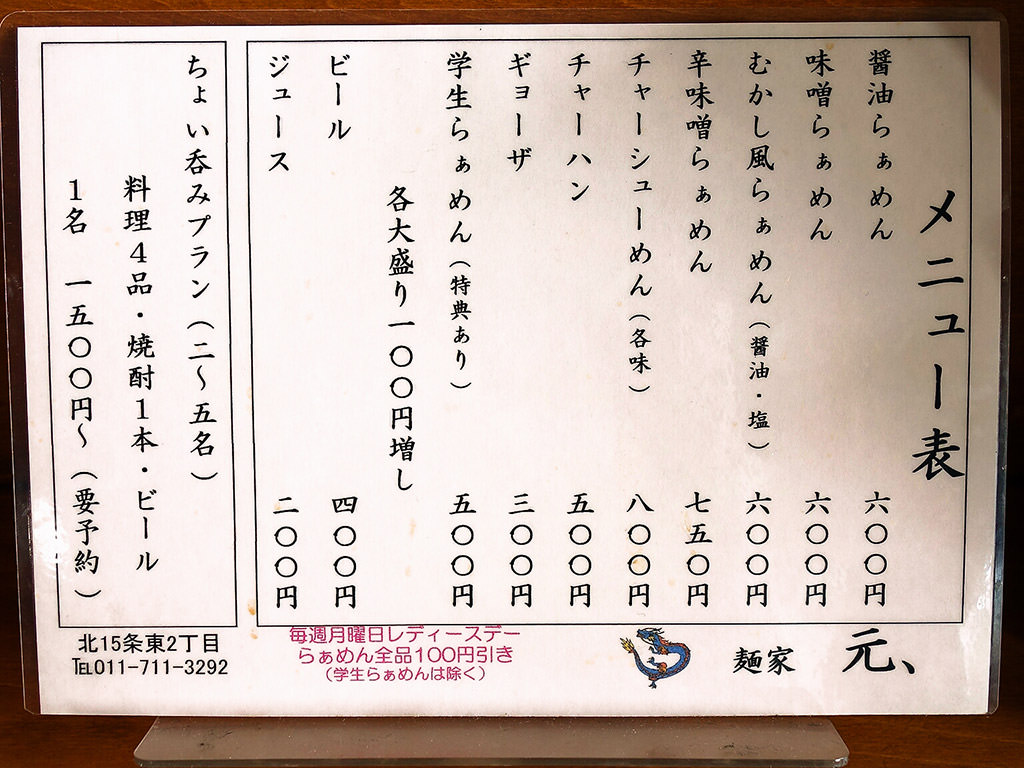 メニュー表
醤油らぁめん 六〇〇円
味噌らぁめん 六〇〇円
むかし風らぁめん（醤油・塩） 六〇〇円
辛味噌らぁめん 七五〇円
チャーシューめん（各味） 八〇〇円
チャーハン 五〇〇円
ギョーザ 三〇〇円
学生らぁめん（特典あり） 五〇〇円
各大盛り一〇〇円増し
ビール 四〇〇円
ジュース 二〇〇円
ちょい呑みプラン（二〜五名）
料理４品・焼酎１本・ビール
１名 一五〇〇円〜（要予約）
麺家 元、
毎週月曜日レディースデー
らぁめん全品100円引き
（学生らぁめんは除く）
北15条東2丁目
℡011-711-3292